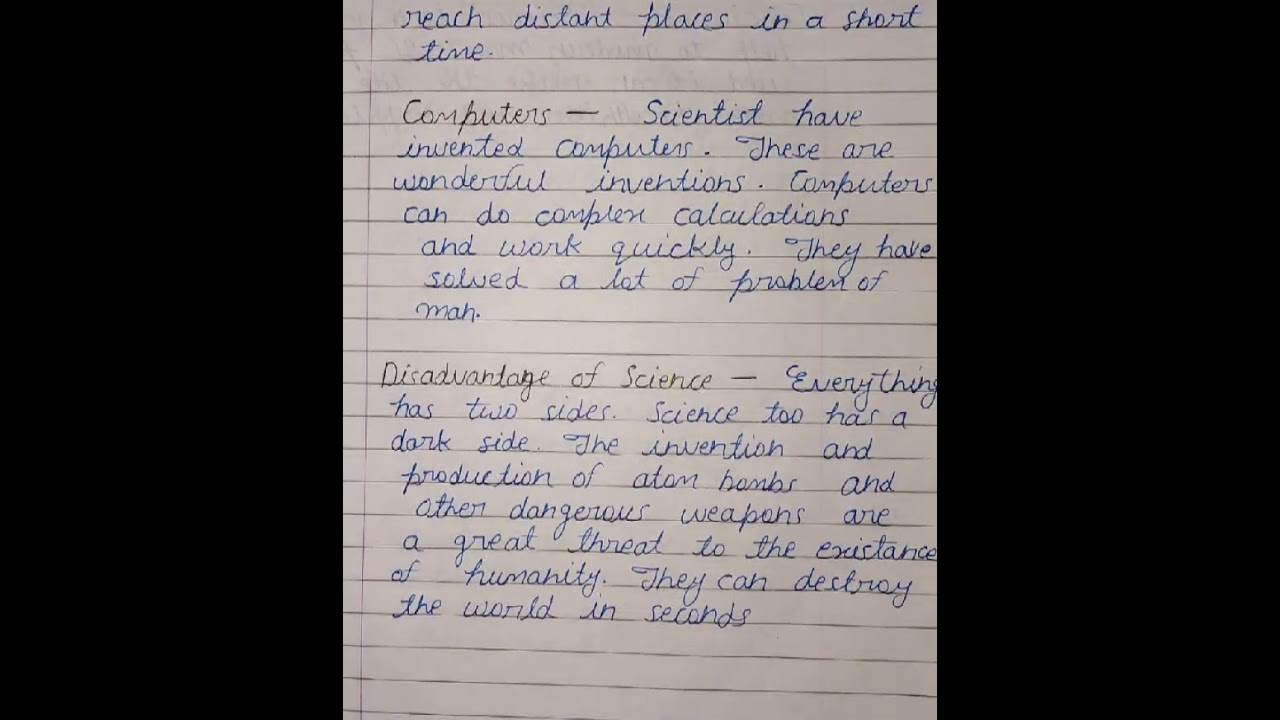 reach distant places in a short
time.
Computers — Scientist have
invented computers. These are
wonderful inventions. Computers
can do complex calculations
and work quickly. They have
solved a lot of problem of
man.
Disadvantage of Science — Everything
has two sides. Science too has a
dark side. The invention and
production of atom bombs and
other dangerous weapons are
a great threat to the existance
of humanity. They can destroy
the world in seconds